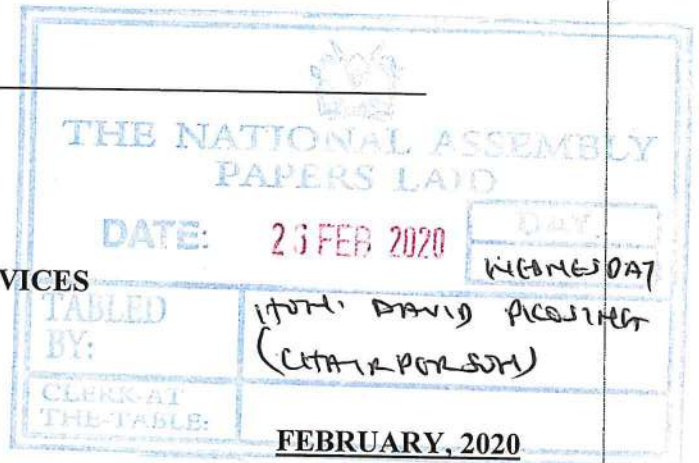 THE NATIONAL ASSEMBLY
PAPERS LAID
DATE: 26 FEB 2020 DAY.
WEDNESDAY
VICES
TABLED BY: HON. DAVID PKOSING
(CHAIRPERSON)
CLERK-AT
THE-TABLE:
FEBRUARY, 2020